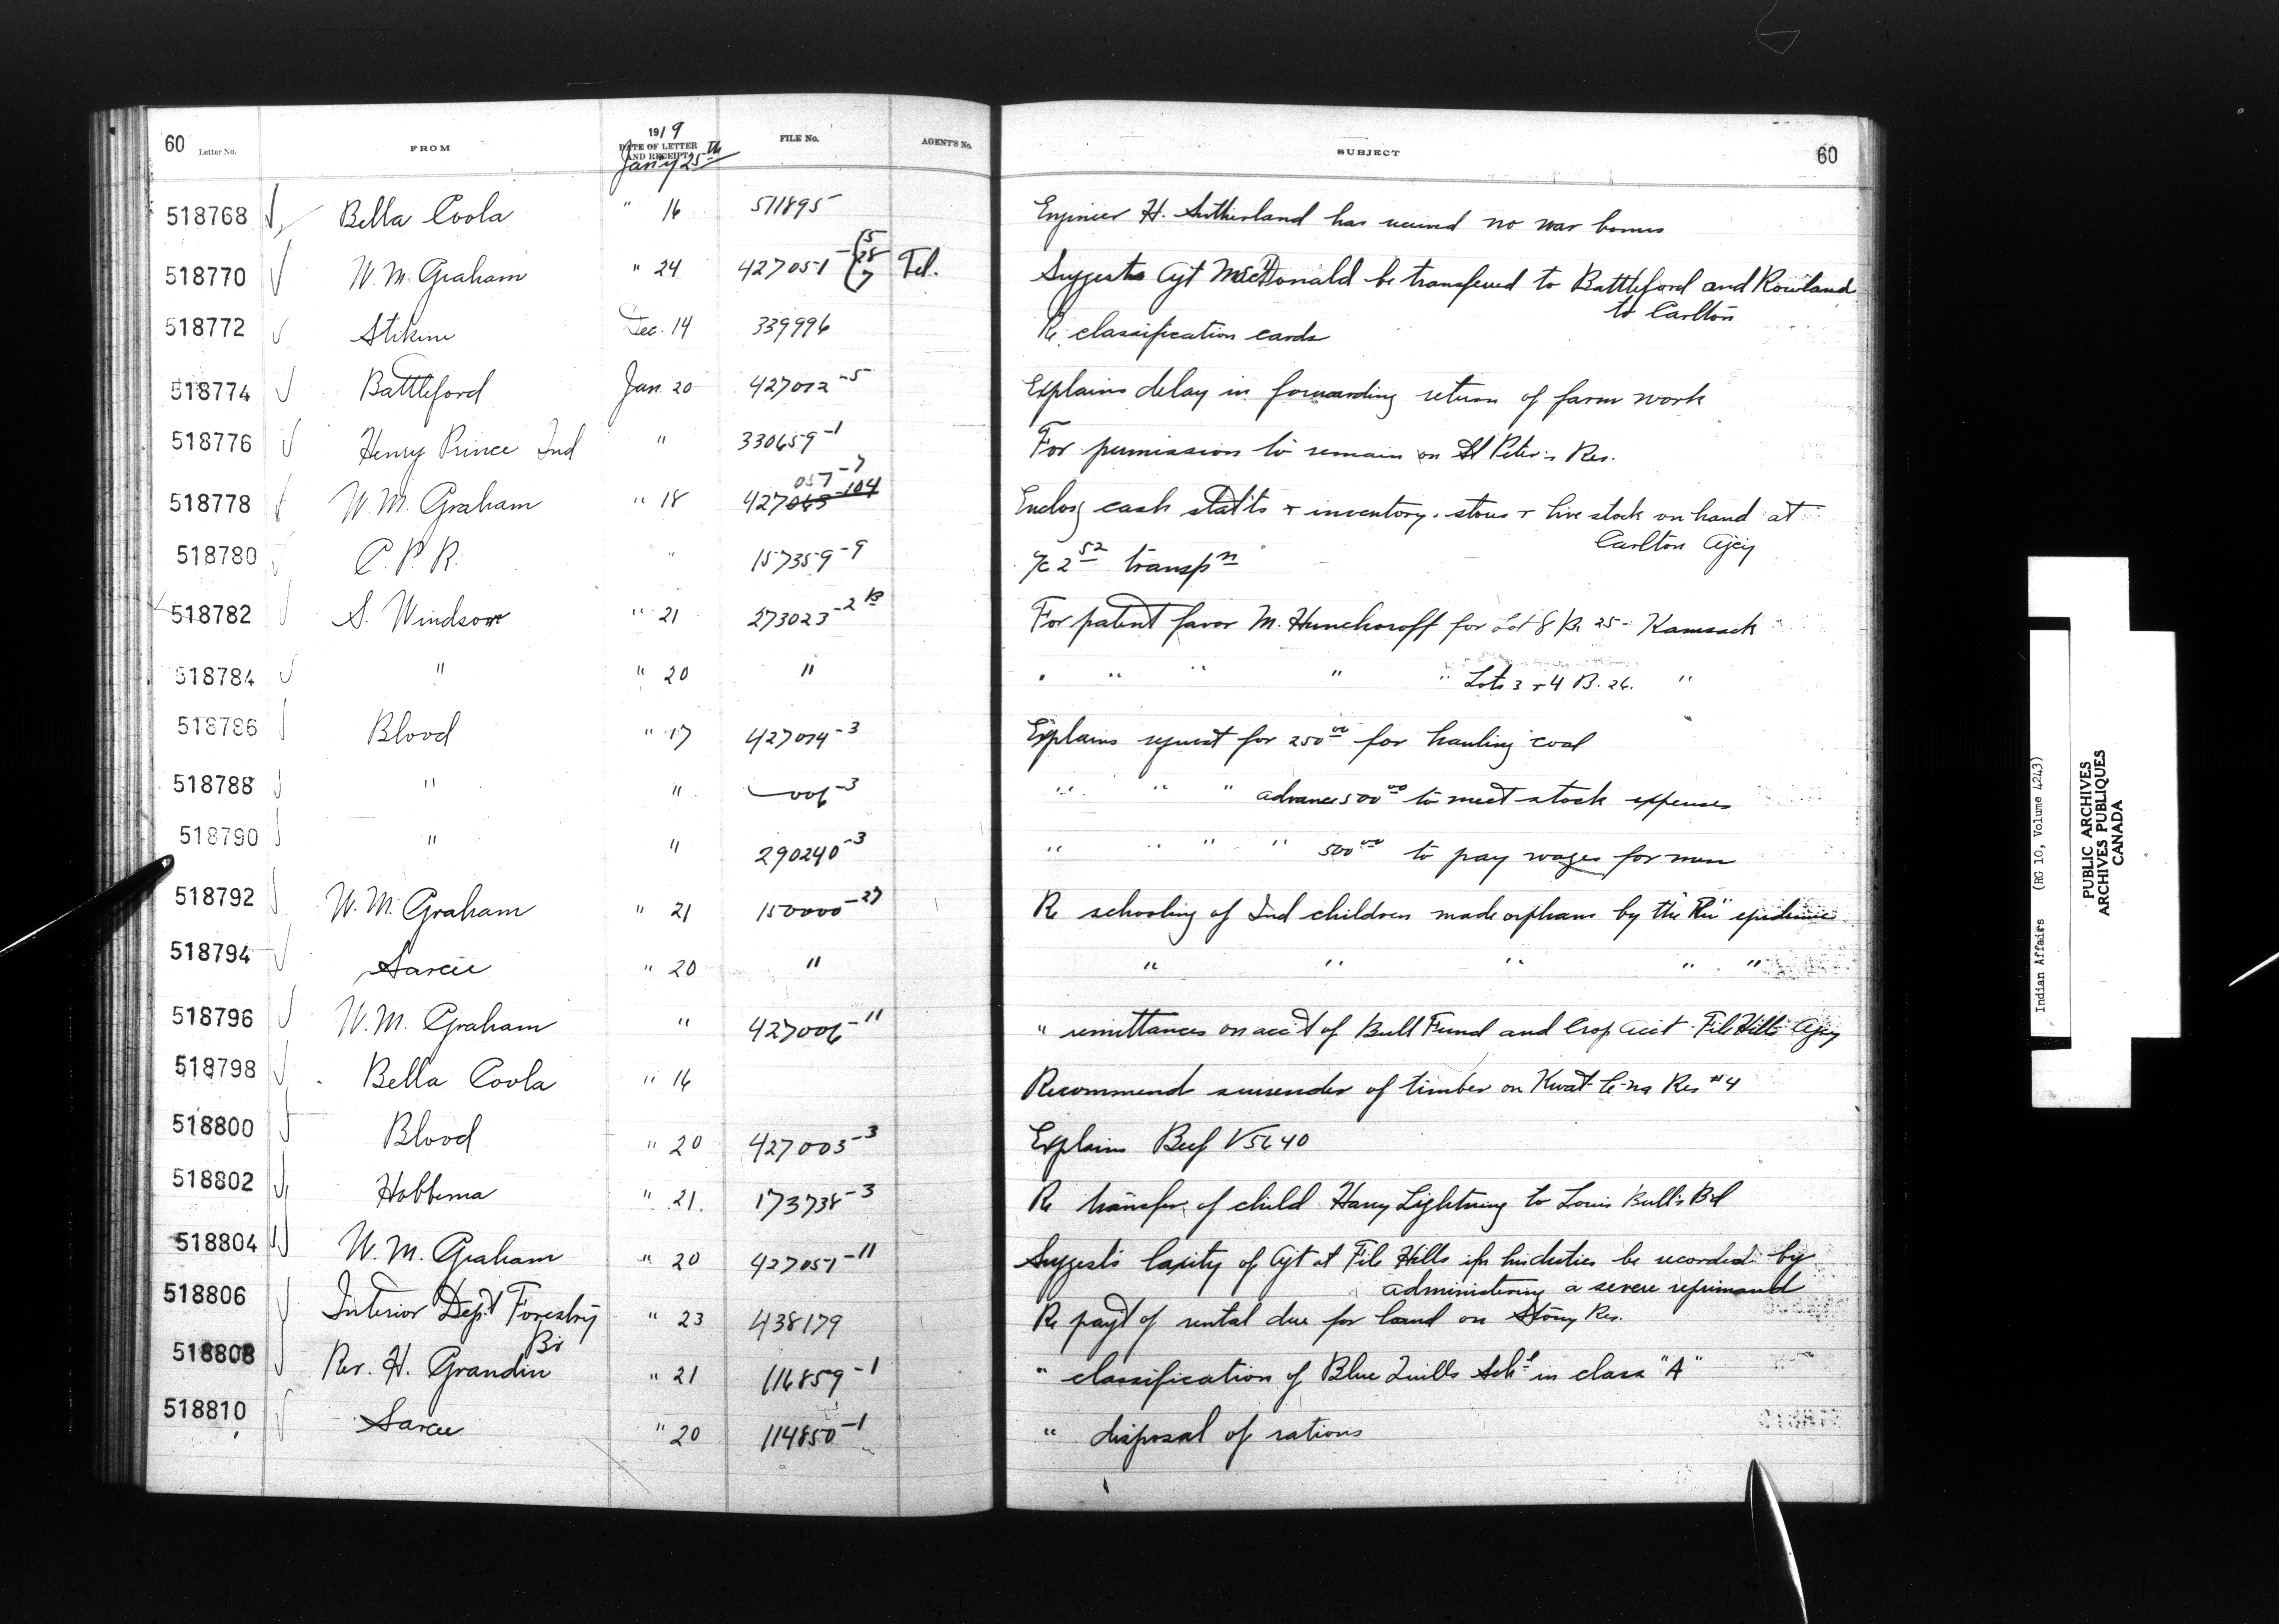 60 Letter No. FROM 1919 DATE OF LETTER AND RECEIPT Jan'y 25th FILE No. AGENT'S No. SUBJECT 60
518768 Bella Coola " 16 511895 Engineer H. Sutherland has received no war bonus
518770 W. M. Graham " 24 427051 - 15 28 7 Tel. Suggests Agt McDonald be transferred to Battleford and Rowland
to Carlton
518772 Stikine Dec. 14 339996 Re classification cards
518774 Battleford Jan. 20 427012-5 Explains delay in forwarding return of farm work
518776 Henry Prince Ind " 330659-1 For permission to remain on St Peter's Res.
057-7
518778 W. M. Graham " 18 427063-104 Enclos g cash statts + inventory, stores + live stock on hand at
Carlton Agcy
518780 C. P. R. " 157359-9 a/c 2 52 transpn
518782 S. Windsor " 21 273023-2 B For patent favor M. Hunchoroff for Lot 8 B. 25 - Kamsack
518784 " " 20 " " " " " " Lots 3 + 4 B. 26. "
518786 Blood " 17 427014-3 Explains request for 250 00 for hauling coal
518788 " " 006-3 " " " advance 500 00 to meet stock expenses
518790 " " 290240-3 " " " " 500 00 to pay wages for men
518792 W. M. Graham " 21 150000-27 Re schooling of Ind children made orphans by the "Flu" epidemic
518794 Sarcee " 20 " " " " " "
518796 W. M. Graham " 427006-11 " remittances on acc't of Bull Fund and Crop Acct File Hills Agcy
518798 Bella Coola " 16 Recommend surrender of timber on Kwat-le-na Res #4
518800 Blood " 20 427003-3 Explains Beef V 5640
518802 Hobbema " 21. 173738-3 Re transfer of child Harry Lightning to Louis Bull's Bd
518804 W. M. Graham " 20 427051-11 Suggests laxity of Agt at File Hills in his duties be recorded by
administering a severe reprimand
518806 Interior Dept Forestry " 23 438179 Re payt of rental due for land on Stony Res.
Br
518808 Rev. H. Grandin " 21 116859-1 " classification of Blue Quills Schl in class "A"
518810 Sarcee " 20 114850-1 " disposal of rations
Indian Affairs (RG 10, Volume 4243)
PUBLIC ARCHIVES
ARCHIVES PUBLIQUES
CANADA